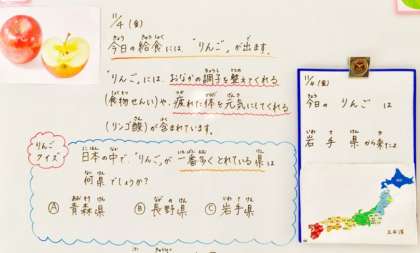 11/4(金)
今日の給食には、"りんご"が出ます。
"りんご"には、おなかの調子を整えてくれる
(食物せんい)や、疲れた体を元気にしてくれる
(リンゴ酸)が含まれています。
りんご
クイズ
日本の中で、"りんご"が一番多くとれている県は
何県でしょうか？
Ⓐ青森県 Ⓑ長野県 Ⓒ岩手県
11/4(金)
今日の りんご は
岩手県から来たよ